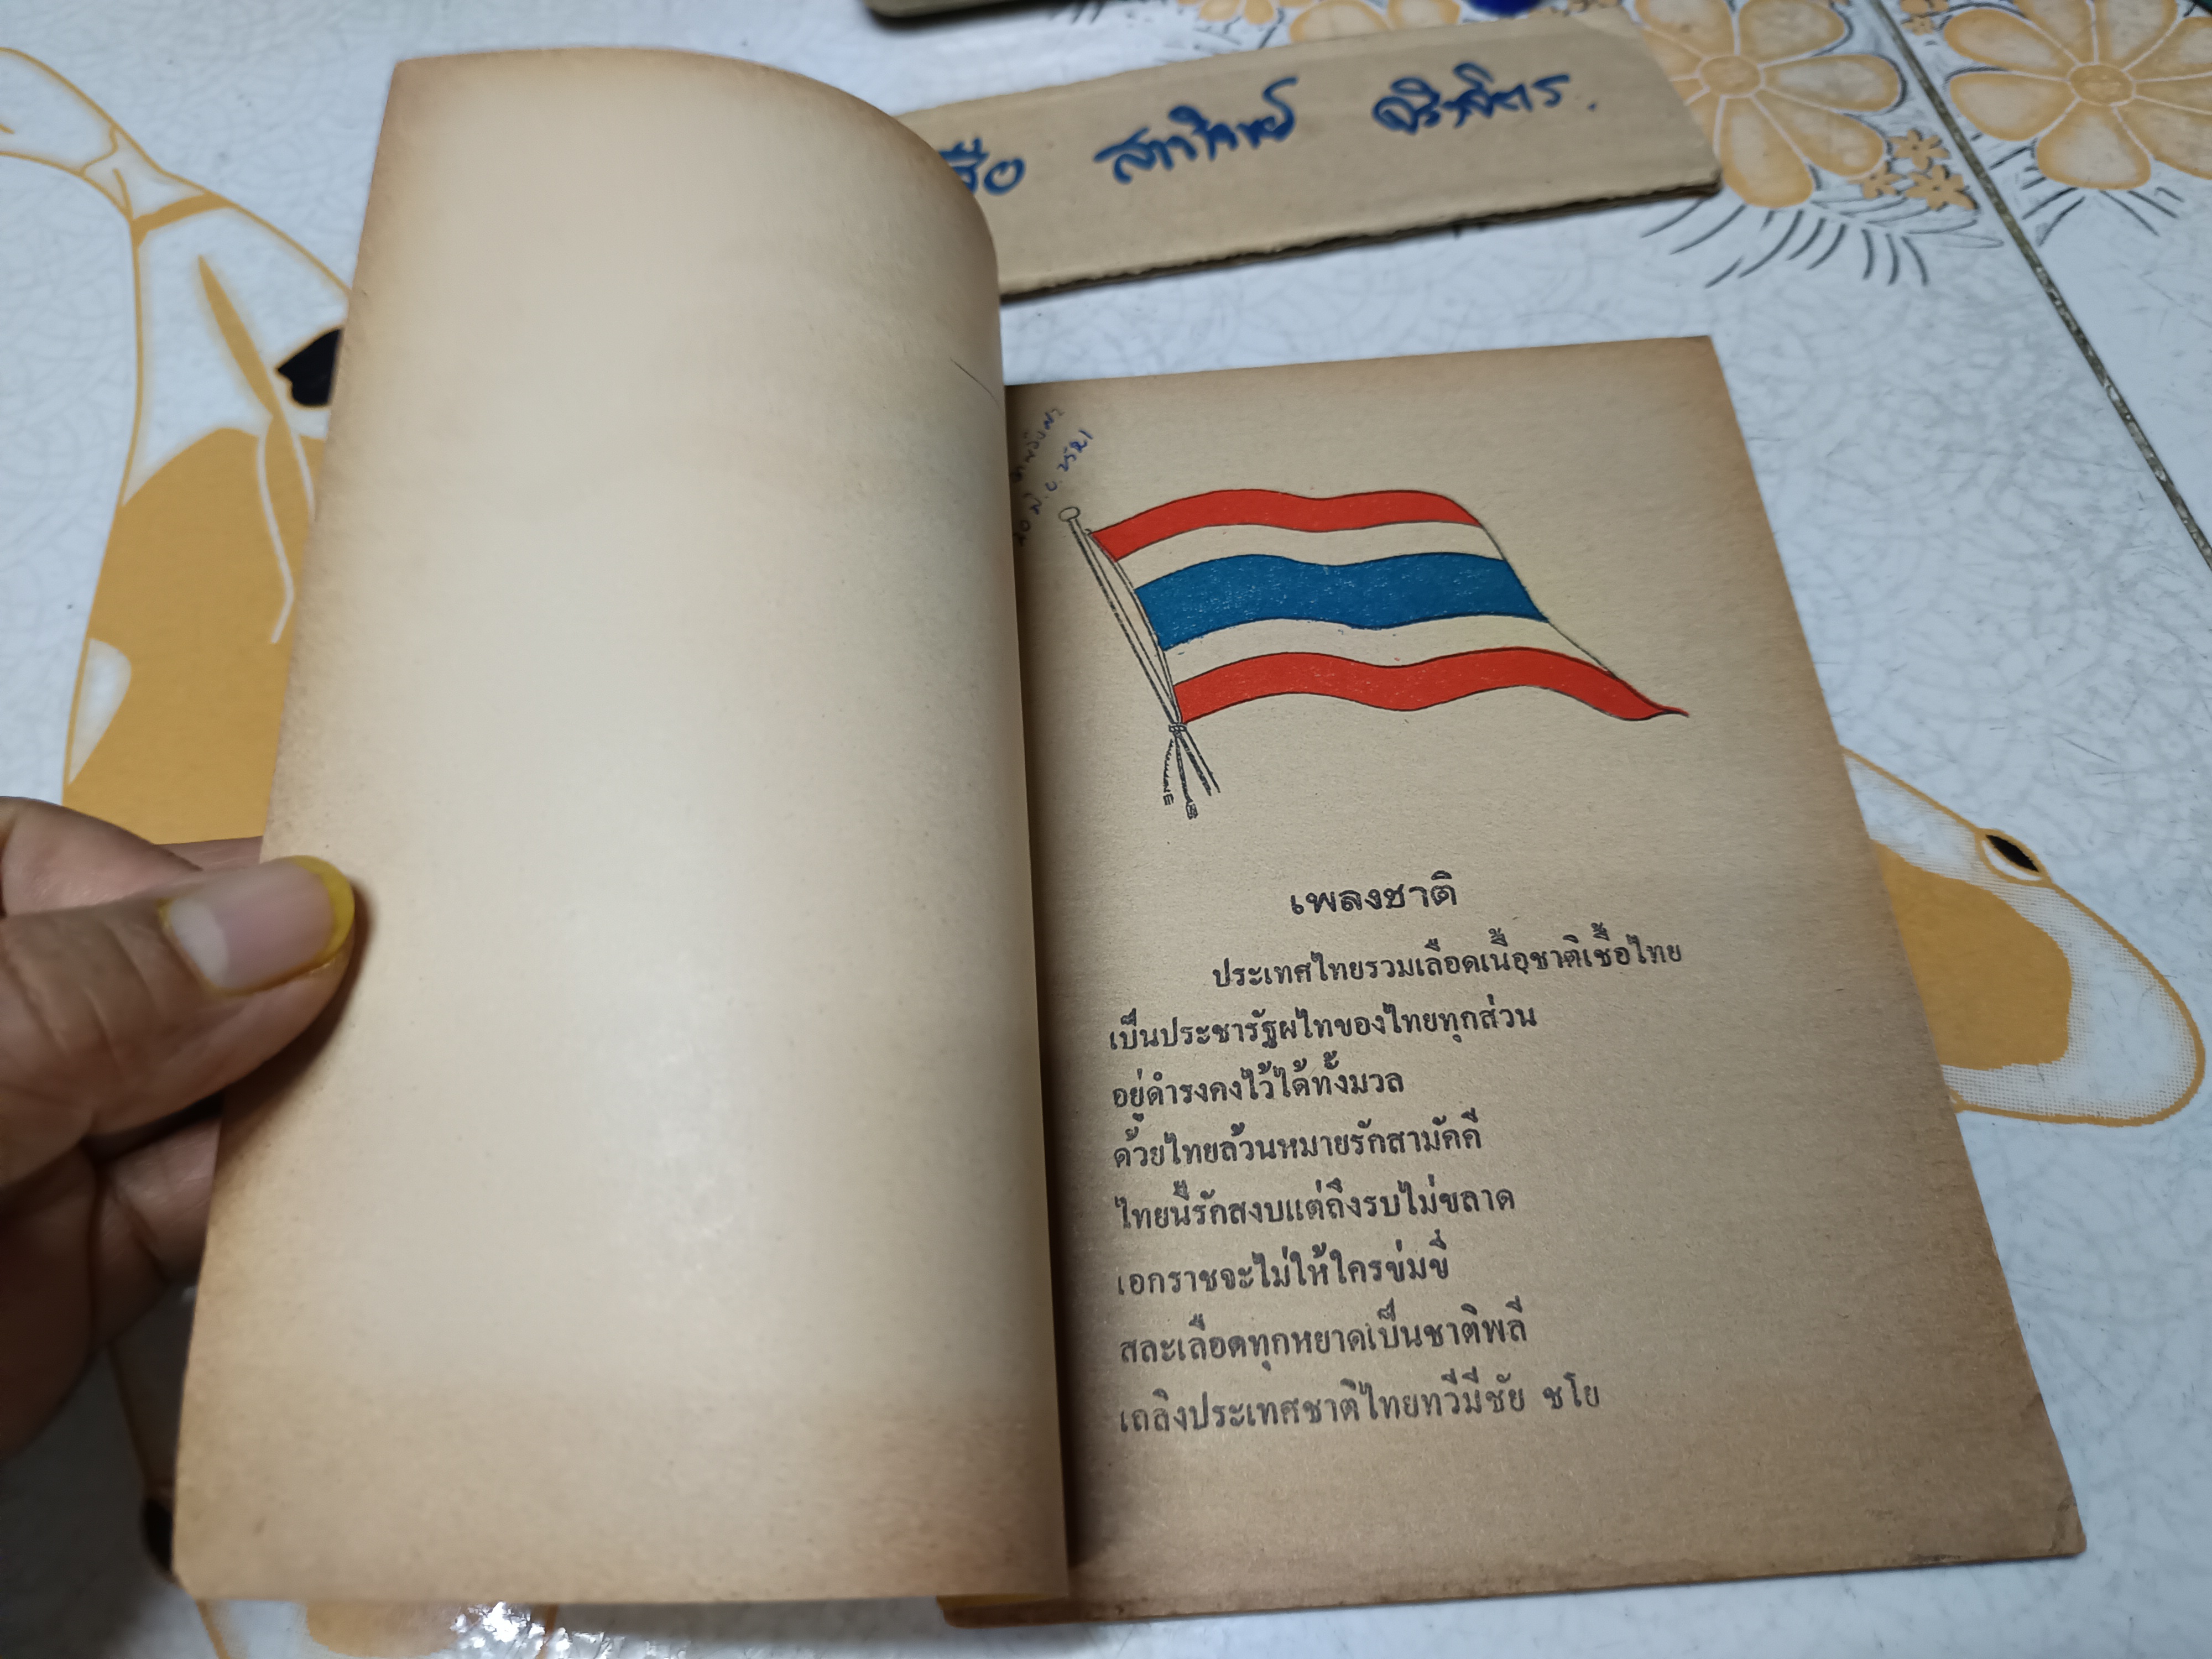 เพลงชาติ
ประเทศไทยรวมเลือดเนื้อชาติเชื้อไทย
เป็นประชารัฐผไทของไทยทุกส่วน
อยู่ดำรงคงไว้ได้ทั้งมวล
ด้วยไทยล้วนหมายรักสามัคคี
ไทยนี้รักสงบแต่ถึงรบไม่ขลาด
เอกราชจะไม่ให้ใครข่มขี่
สละเลือดทุกหยาดเป็นชาติพลี
เถลิงประเทศชาติไทยทวีมีชัย ชโย